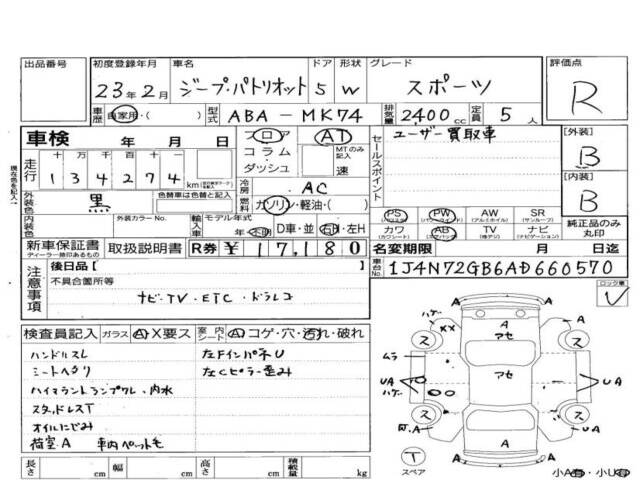 出品番号 初度登録年月 車名 ドア 形状 グレード 評価点
23年2月 ジープ・パトリオット 5 W スポーツ R
車歴 自家用・( ) 型式 ABA-MK74 排気量 2400 cc 定員 5 人
車検 年 月 日 フロア AT セールスポイント ユーザー買取車 [外装]
コラム MTのみ記入 B
ダッシュ 速
走行 十万 万 千 百 十 一
134274 km
冷房 AC [内装]
燃料 ガソリン・軽油・( ) B
外装色 黒 色替車は色替と記入
内装色 外装カラーNo. 輸入車 モデル年式
年・不明 D車・並 右H・左H
PS PW AW SR
(パワステ) (パワーウィンドウ) (アルミホイル) (サンルーフ)
カワ AB TV ナビ 純正品のみ丸印
(カワシート) (エアバッグ) (純テレビ) (ナビゲーション)
新車保証書 取扱説明書 R券 ¥17,180 名変期限 月 日迄
ディーラー捺印あるもの
車台No. 1J4N72GB6AD660570
現在色を記入
注意事項 後日品[ ]
不具合箇所等
ナビ・TV・ETC・ドラレコ
ロック車
検査員記入 ガラス A・X要ス 室内シート A・コゲ・穴・汚れ・破れ
ハンドルスレ 左FインパネU
シートヘタリ 左Cピラー歪み
ハイマウントランプワレ・内水
スタッドレスT
オイルにじみ
荷室A 車内ペット毛
ハゲ XX A ス アセ A
ムラ
UA アセ UA
ハゲ
ス A A
T
スペア 小A有・小U有
長さ cm 幅 cm 高さ cm 積載量 kg